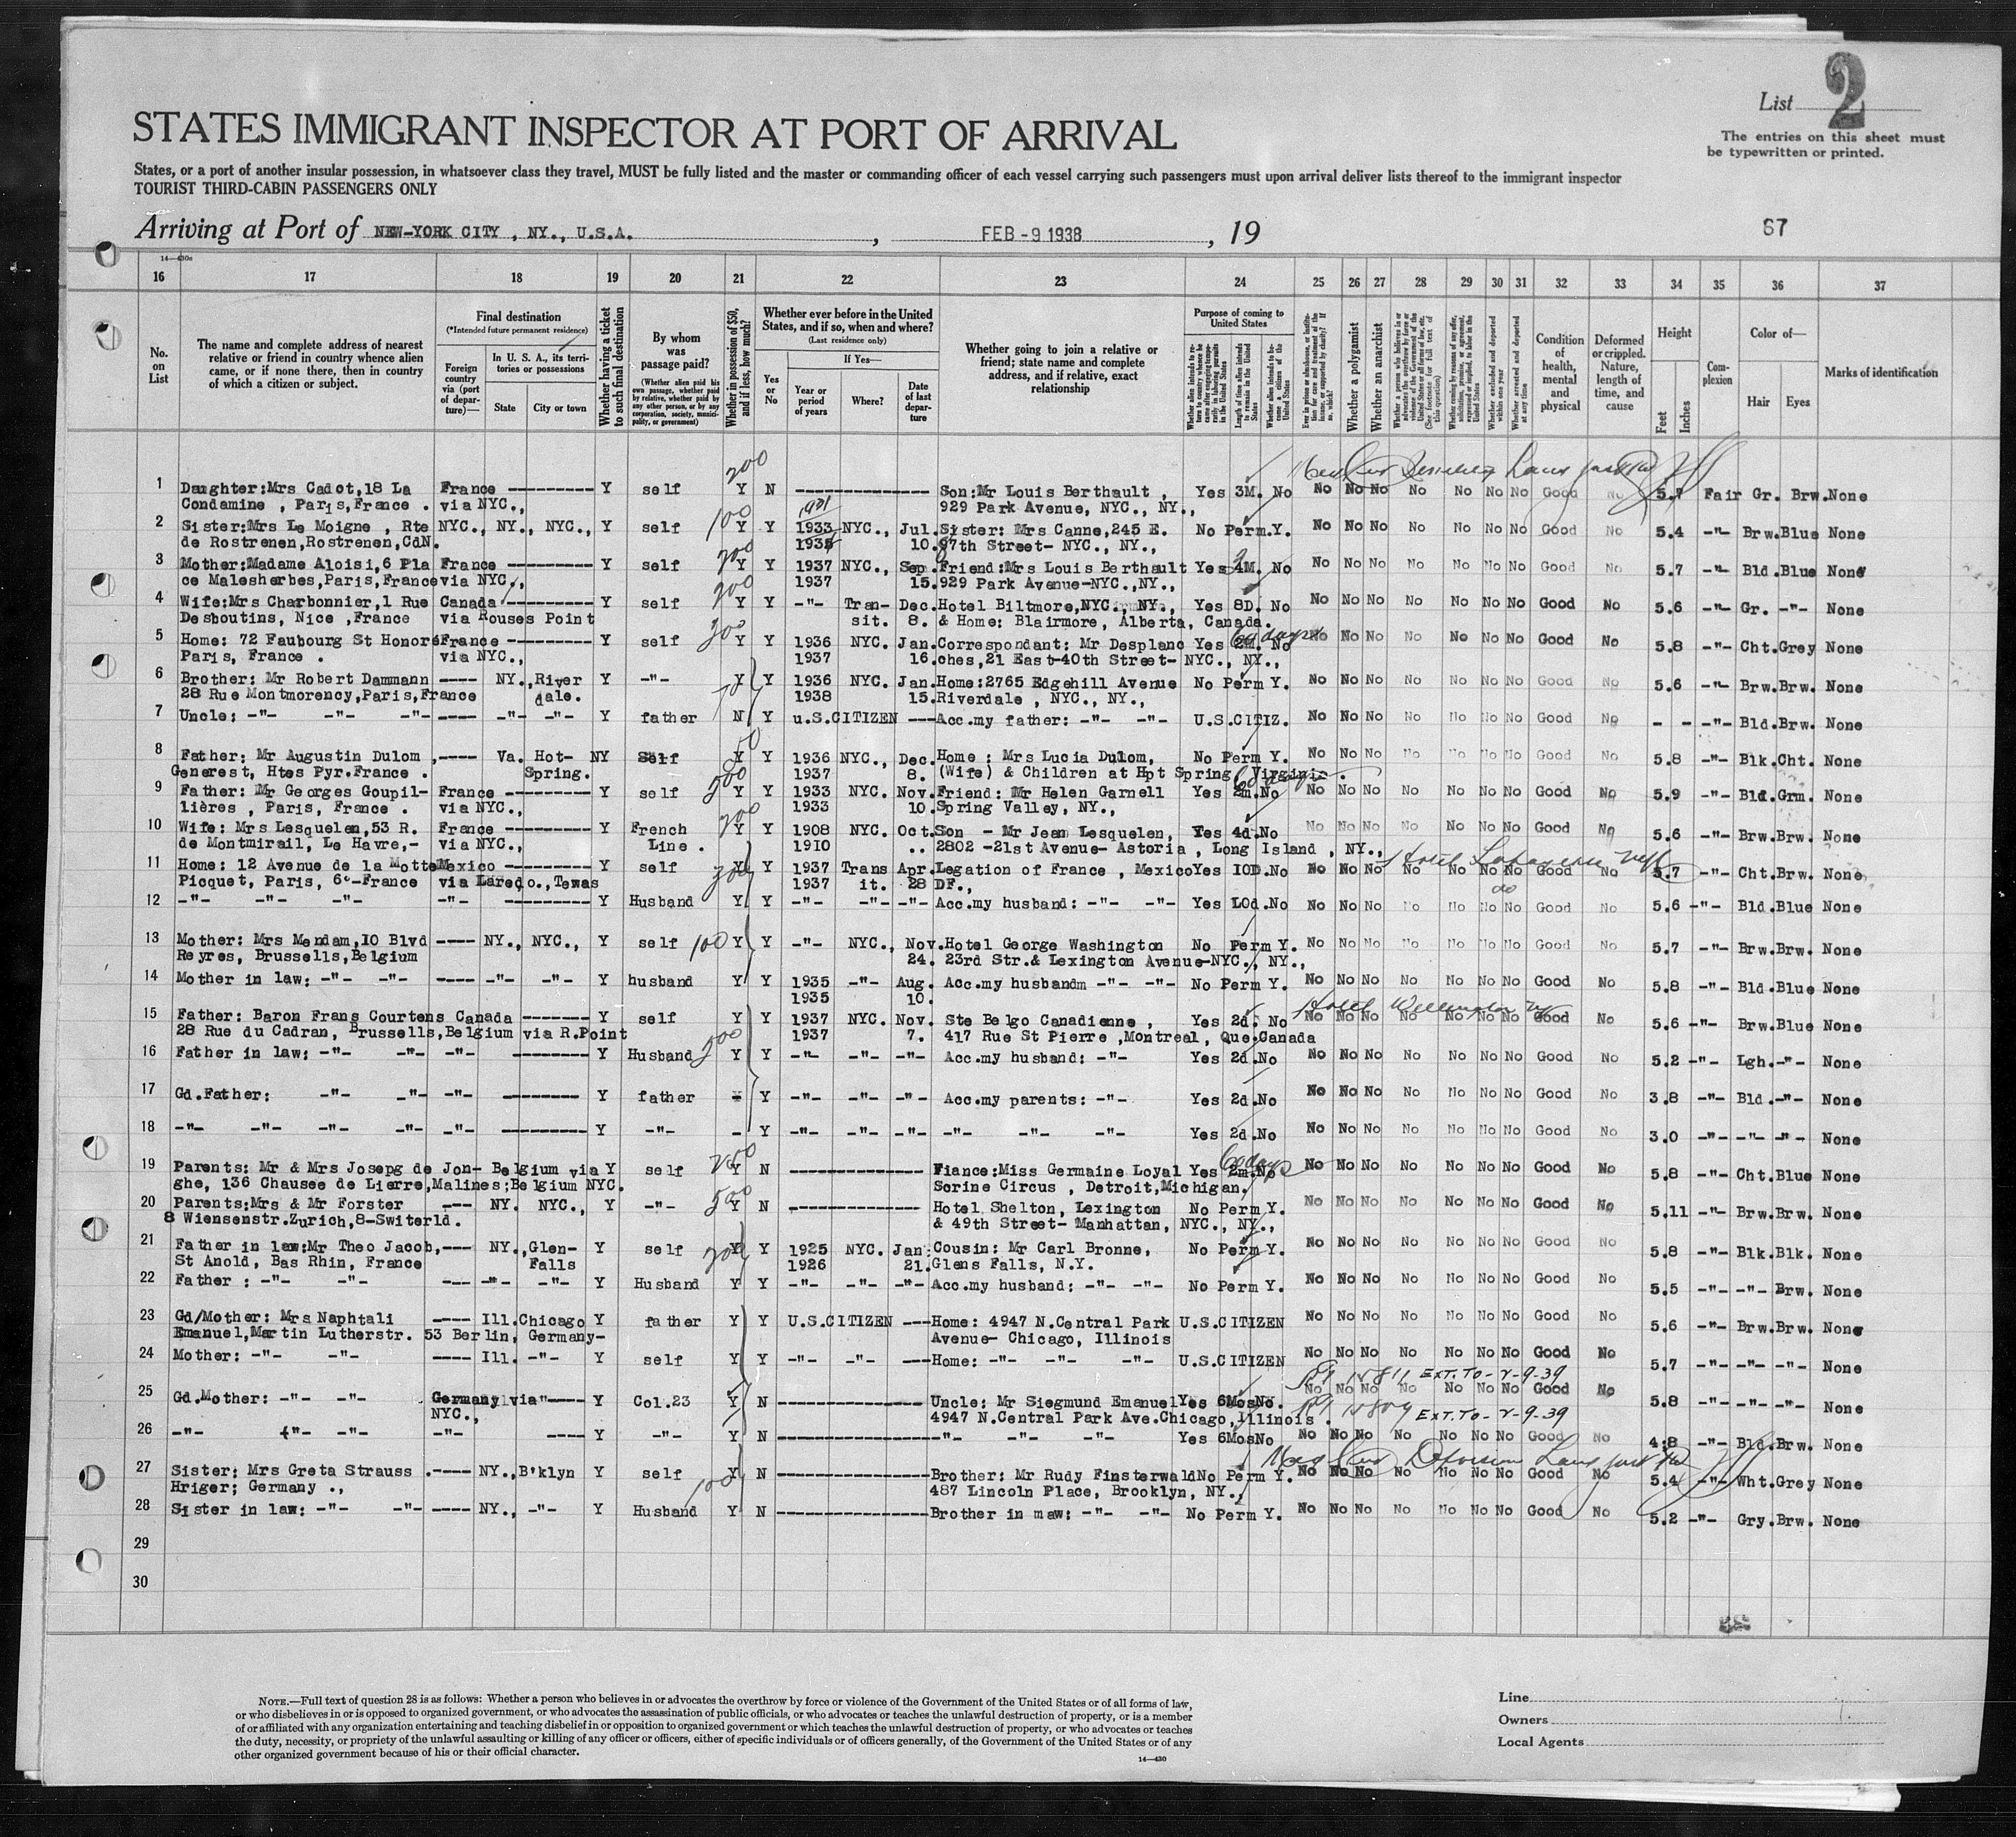 List 2
The entries on this sheet must
be typewritten or printed.
STATES IMMIGRANT INSPECTOR AT PORT OF ARRIVAL
States, or a port of another insular possession, in whatsoever class they travel, MUST be fully listed and the master or commanding officer of each vessel carrying such passengers must upon arrival deliver lists thereof to the immigrant inspector
TOURIST THIRD-CABIN PASSENGERS ONLY
Arriving at Port of NEW-YORK CITY , NY., U.S.A. , FEB -9 1938 , 19 67
14—430a
16 17 18 19 20 21 22 23 24 25 26 27 28 29 30 31 32 33 34 35 36 37
No. on List
The name and complete address of nearest relative or friend in country whence alien came, or if none there, then in country of which a citizen or subject.
Final destination
(*Intended future permanent residence)
Foreign country via (port of departure)—
In U. S. A., its territories or possessions
State City or town
Whether having a ticket to such final destination
By whom was passage paid?
(Whether alien paid his own passage, whether paid by relative, whether paid by any other person, or by any corporation, society, municipality, or government)
Whether in possession of $50, and if less, how much?
Whether ever before in the United States, and if so, when and where?
(Last residence only)
Yes or No
If Yes—
Year or period of years Where? Date of last departure
Whether going to join a relative or friend; state name and complete address, and if relative, exact relationship
Purpose of coming to United States
Whether a polygamist
Whether an anarchist
Condition of health, mental and physical
Deformed or crippled. Nature, length of time, and cause
Height
Feet Inches
Complexion
Color of—
Hair Eyes
Marks of identification
1 Daughter:Mrs Cadot,18 La France --------- Y self 200 Y N -------------- Son:Mr Louis Berthault , Yes 3M. No No No No No No No No Good No 5.7 Fair Gr. Brw. None
Condamine , Paris,France . via NYC., 929 Park Avenue, NYC., NY.,
2 Sister:Mrs Le Moigne , Rte NYC., NY., NYC., Y self 100 Y Y 1931 1933 NYC., Jul. Sister: Mrs Canne,245 E. No Perm.Y. No No No No No No No Good No 5.4 -"- Brw.Blue None
de Rostrenen,Rostrenen,CdN. 10. 87th Street- NYC., NY.,
3 Mother:Madame Aloisi,6 Pla France --------- Y self 200 Y Y 1937 NYC., Sep. Friend:Mrs Louis Berthault Yes 4M. No No No No No No No No Good No 5.7 -"- Bld.Blue None
ce Malesherbes,Paris,France via NYC., 1937 15. 929 Park Avenue-NYC.,NY.,
4 Wife:Mrs Charbonnier,1 Rue Canada --------- Y self 200 Y Y -"- Tran- Dec. Hotel Biltmore,NYC., NY., Yes 8D. No No No No No No No No Good No 5.6 -"- Gr. -"- None
Desboutins, Nice ,France via Rouses Point sit. 8. & Home: Blairmore, Alberta, Canada.
5 Home: 72 Faubourg St Honoré France --------- Y self 200 Y Y 1936 NYC. Jan. Correspondant: Mr Desplanc Yes 2M. No 60 days No No No No No No No Good No 5.8 -"- Cht.Grey None
Paris, France . via NYC., 1937 16. ches,21 East-40th Street- NYC., NY.,
6 Brother: Mr Robert Dammann ---- NY.,River Y -"- Y Y 1936 NYC. Jan. Home:2765 Edgehill Avenue No Perm Y. No No No No No No No Good No 5.6 -"- Brw.Brw. None
28 Rue Montmorency,Paris,France dale. 1938 15. Riverdale , NYC., NY.,
7 Uncle: -"- -"- -"- ---- -"- -"- Y father N Y u.S.CITIZEN --- Acc.my father: -"- -"- U.S.CITIZ. No No No No No No No Good No - - -"- Bld.Brw. None
8 Father: Mr Augustin Dulom ,---- Va. Hot- NY Self 50 Y Y 1936 NYC., Dec. Home : Mrs Lucia Dulom, No Perm Y. No No No No No No No Good No 5.8 -"- Blk.Cht. None
Generest, Htes Pyr.France . Spring. 1937 8. (Wife) & Children at Hpt Spring, Virginia .
9 Father: Mr Georges Goupil- France --------- Y self 500 Y Y 1933 NYC. Nov. Friend: Mr Helen Garnell Yes 2m.No No No No No No No No Good No 5.9 -"- Bld.Grm. None
lières , Paris, France . via NYC., 1933 10. Spring Valley, NY.,
10 Wife: Mrs Lesquelen,53 R. France --------- Y French 200 Y Y 1908 NYC. Oct. Son - Mr Jean Lesquelen, Yes 4d.No No No No No No No No Good No 5.6 -"- Brw.Brw. None
de Montmirail, Le Havre,- via NYC., Line . 1910 .. 2802 -21st Avenue- Astoria , Long Island , NY.,
11 Home: 12 Avenue de la Motte Mexico --------- Y self Y Y 1937 Trans Apr. Legation of France , Mexico Yes 10D.No No No No No No No No Good No 5.7 -"- Cht.Brw. None
Picquet, Paris, 6°-France via Laredo.,Tewas 300 1937 it. 28 DF.,
12 -"- -"- -"- -"- --------- Y Husband Y Y -"- -"- -"- Acc.my husband: -"- -"- Yes LOd.No No No No No No No No Good No 5.6 -"- Bld.Blue None
13 Mother: Mrs Mendam,10 Blvd ---- NY., NYC., Y self 100 Y Y -"- NYC., Nov. Hotel George Washington No Perm Y. No No No No No No No Good No 5.7 -"- Brw.Brw. None
Reyres, Brussells,Belgium 24. 23rd Str.& Lexington Avenue-NYC., NY.,
14 Mother in law: -"- -"- ---- -"- -"- Y husband Y Y 1935 -"- Aug. Acc.my husbandm -"- -"- No Perm Y. No No No No No No No Good No 5.8 -"- Bld.Blue None
1935 10.
15 Father: Baron Frans Courtens Canada ------- Y self Y Y 1937 NYC. Nov. Ste Belgo Canadienne , Yes 2d. No No No No No No No No Good No 5.6 -"- Brw.Blue None
28 Rue du Cadran, Brussells,Belgium via R.Point 1937 7. 417 Rue St Pierre ,Montreal, Que.Canada
16 Father in law: -"- -"- -"- -------- Y Husband 500 Y Y -"- -"- -"- Acc.my husband: -"- Yes 2d.No No No No No No No No Good No 5.2 -"- Lgh.-"- None
17 Gd.Father: -"- -"- -"- -------- Y father - Y -"- -"- -"- Acc.my parents: -"- Yes 2d.No No No No No No No No Good No 3.8 -"- Bld.-"- None
18 -"- -"- -"- -"- -"- --------- Y -"- - Y -"- -"- -"- -"- -"- -"- Yes 2d.No No No No No No No No Good No 3.0 -"- -"- -"- None
19 Parents: Mr & Mrs Josepg de Jon- Belgium via Y self 250 Y N -------------- Fiance:Miss Germaine Loyal Yes 2m.No 60 days No No No No No No No Good No 5.8 -"- Cht.Blue None
ghe, 136 Chausee de Lierre,Malines;Belgium NYC. Sorine Circus , Detroit,Michigan.
20 Parents:Mrs & Mr Forster --- NY. NYC., Y -"- 500 Y N -------------- Hotel Shelton, Lexington No Perm Y. No No No No No No No Good No 5.11 -"- Brw.Brw. None
8 Wiensenstr.Zurich,8-Switerld. & 49th Street- Manhattan, NYC., NY.,
21 Father in law:Mr Theo Jacob,--- NY.,Glen- Y self 200 Y Y 1925 NYC. Jan. Cousin: Mr Carl Bronne, No Perm Y. No No No No No No No Good No 5.8 -"- Blk.Blk. None
St Anold, Bas Rhin, France Falls 1926 21. Glens Falls, N.Y.
22 Father : -"- -"- --- -"- -"- Y Husband Y Y -"- -"- -"- Acc.my husband: -"- -"- No Perm Y. No No No No No No No Good No 5.5 -"- -"- Brw. None
23 Gd/Mother: Mrs Naphtali ---- Ill.Chicago Y father Y Y U.S.CITIZEN --- Home: 4947 N.Central Park U.S.CITIZEN No No No No No No No Good No 5.6 -"- Brw.Brw. None
Emanuel,Martin Lutherstr. 53 Berlin, Germany- Avenue- Chicago, Illinois
24 Mother: -"- -"- ---- Ill. -"- Y self Y Y -"- -"- --- Home: -"- -"- -"- U.S.CITIZEN No No No No No No No Good No 5.7 -"- -"- -"- None
EXT. TO - 2-9-39
25 Gd.Mother: -"- -"- Germany via"---- Y Col.23 Y N -------------- Uncle: Mr Siegmund Emanuel Yes 6MosNo. No No No No No No No Good No 5.8 -"- -"- -"- None
NYC., 4947 N.Central Park Ave.Chicago,Illinois . EXT. TO - 2-9-39
26 -"- -"- -"- -"- ---- Y -"- Y N -------------- -"- -"- -"- Yes 6MosNo No No No No No No No Good No 4.8 -"- Bld.Brw. None
27 Sister: Mrs Greta Strauss .---- NY.,B'klyn Y self Y N -------------- Brother: Mr Rudy Finsterwald No Perm Y. No No No No No No No Good No 5.4 -"- Wht.Grey None
Hriger; Germany ., 100 487 Lincoln Place, Brooklyn, NY.,
28 Sister in law: -"- -"- ---- NY., -"- Y Husband Y N -------------- Brother in maw: -"- -"- No Perm Y. No No No No No No No Good No 5.2 -"- Gry.Brw. None
29
30
NOTE.—Full text of question 28 is as follows: Whether a person who believes in or advocates the overthrow by force or violence of the Government of the United States or of all forms of law,
or who disbelieves in or is opposed to organized government, or who advocates the assassination of public officials, or who advocates or teaches the unlawful destruction of property, or is a member
of or affiliated with any organization entertaining and teaching disbelief in or opposition to organized government or which teaches the unlawful destruction of property, or who advocates or teaches
the duty, necessity, or propriety of the unlawful assaulting or killing of any officer or officers, either of specific individuals or of officers generally, of the Government of the United States or of any
other organized government because of his or their official character.
14—430
Line
Owners
Local Agents